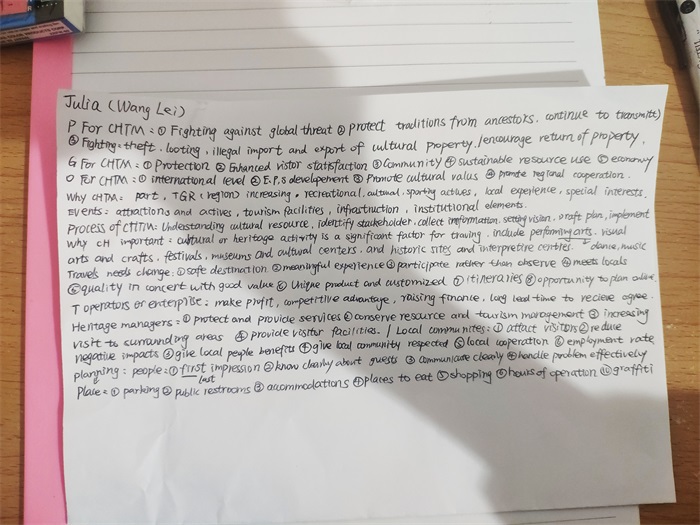 Julia (Wang Lei)
P For CHTM: ① Fighting against global threat ② protect traditions from ancestors. continue to transmit)
③ Fighting: theft, looting, illegal import and export of cultural property./encourage return of property.
G For CHTM: ① Protection ② Enhanced vistor statisfaction ③ Community ④ sustainable resource use ⑤ economy
O For CHTM: ① international level ② E.P.S developement ③ Promote cultural valus ④ promote regional cooperation.
Why CHTM: part, TGR (region) increasing, recreational, cultural, sporting actives, local experience, special interests.
Events: attractions and actives, tourism facilities, infrastruction, institutional elements.
Process of CHTM: Understanding cultural resource, identify stakeholder, collect imformation, setting vision, draft plan, implement
Why CH important: cultural or heritage activity is a significant factor for traving. include performing arts. visual
arts and crafts, festivals, museums and cultural centers, and historic sites and interpretire centres. dance, music
Travels needs change: ① safe destination ② meaningful experience ③ participate rather than observe ④ meets locals
⑤ quality in concert with good value ⑥ Unique product and customized ⑦ itineraries ⑧ opportunity to plan online.
T operators or enterprise: make profit, competitive advantage, raising finance, long lead time to recieve agree.
Heritage managers: ① protect and provide services ② conserve resource and tourism management ③ increasing
visit to surrounding areas ④ provide visitor facilities. / Local communites: ① attact visitors ② reduce
negative impacts ③ give local people benefits ④ give local community respected ⑤ local cooperation ⑥ employment rate
planning: people: ① first impression ② know clearly about guests ③ communicate clearly ④ handle problem effectively
last
Place: ① parking ② public restrooms ③ accommodations ④ places to eat ⑤ shopping ⑥ hours of operation ⑩ graffiti